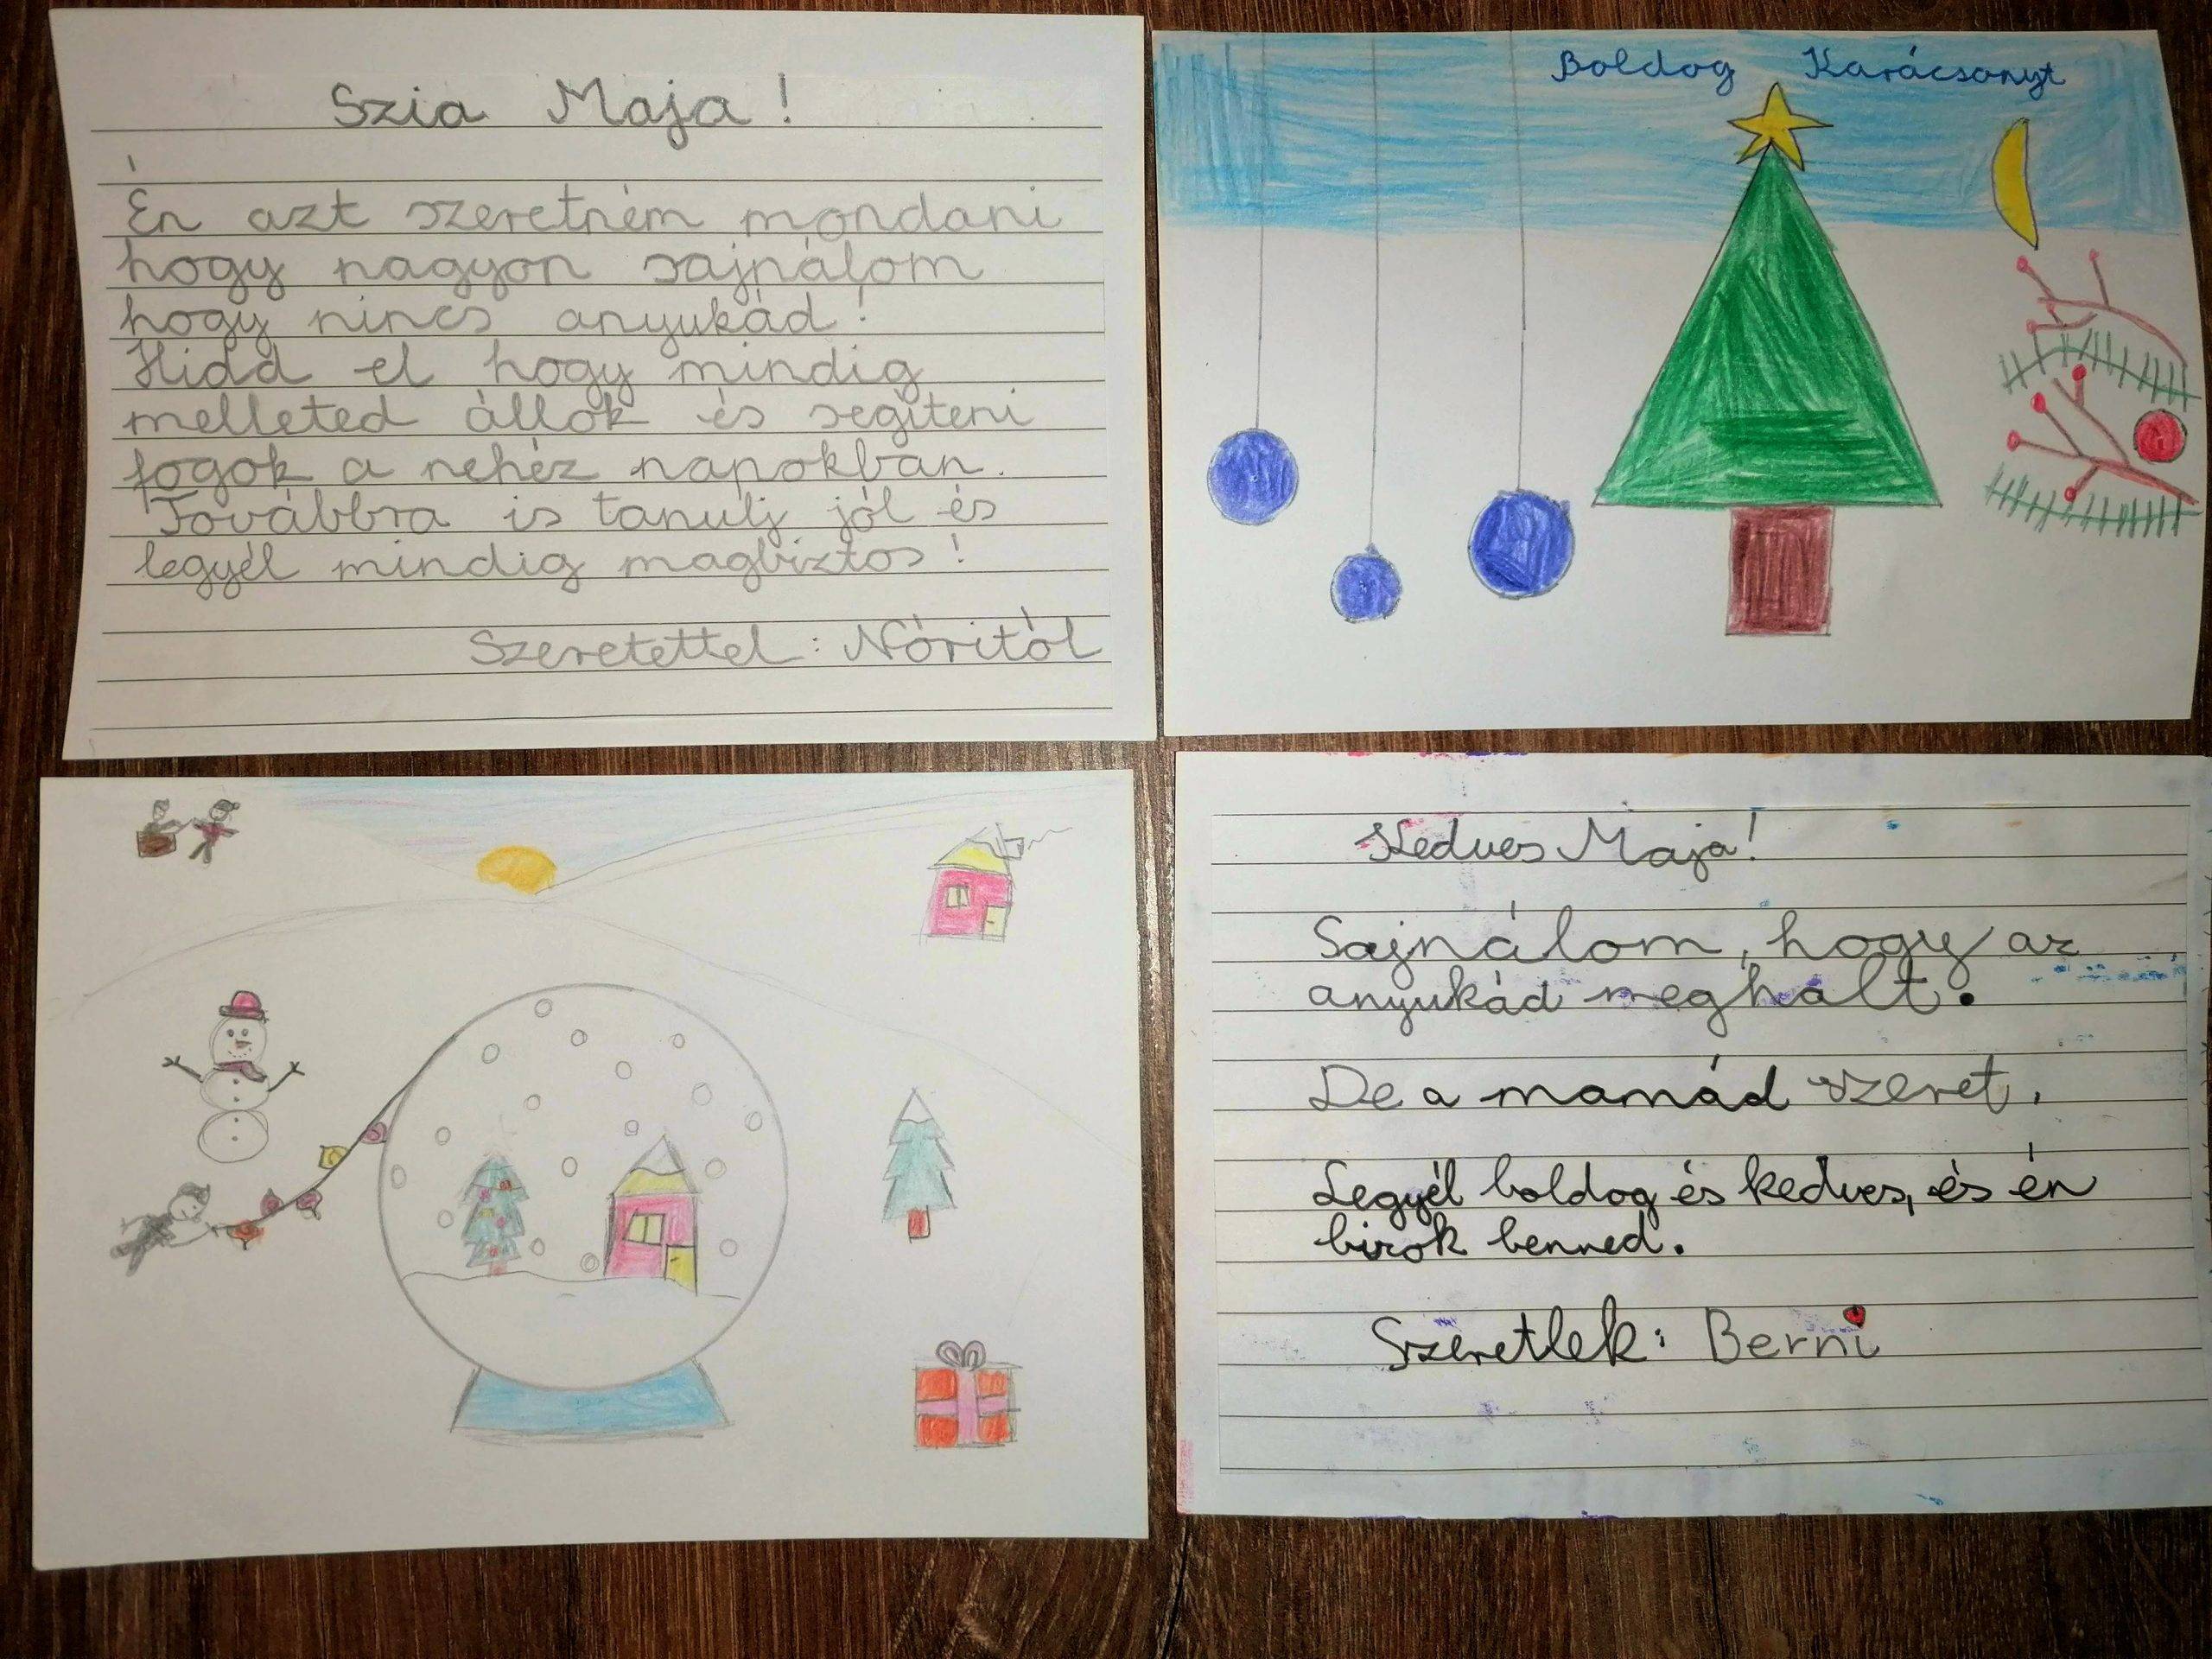 Szia Maja!
Én azt szeretném mondani
hogy nagyon sajnálom
hogy nincs anyukád!
Hidd el hogy mindig
melleted állok és segíteni
fogok a nehéz napokban.
Továbbra is tanulj jól és
legyél mindig magbiztos!
Szeretettel: Nóritól
Boldog Karácsonyt
Kedves Maja!
Sajnálom, hogy az
anyukád meghalt.
De a mamád szeret.
Legyél boldog és kedves, és én
bizok benned.
Szeretlek: Berni